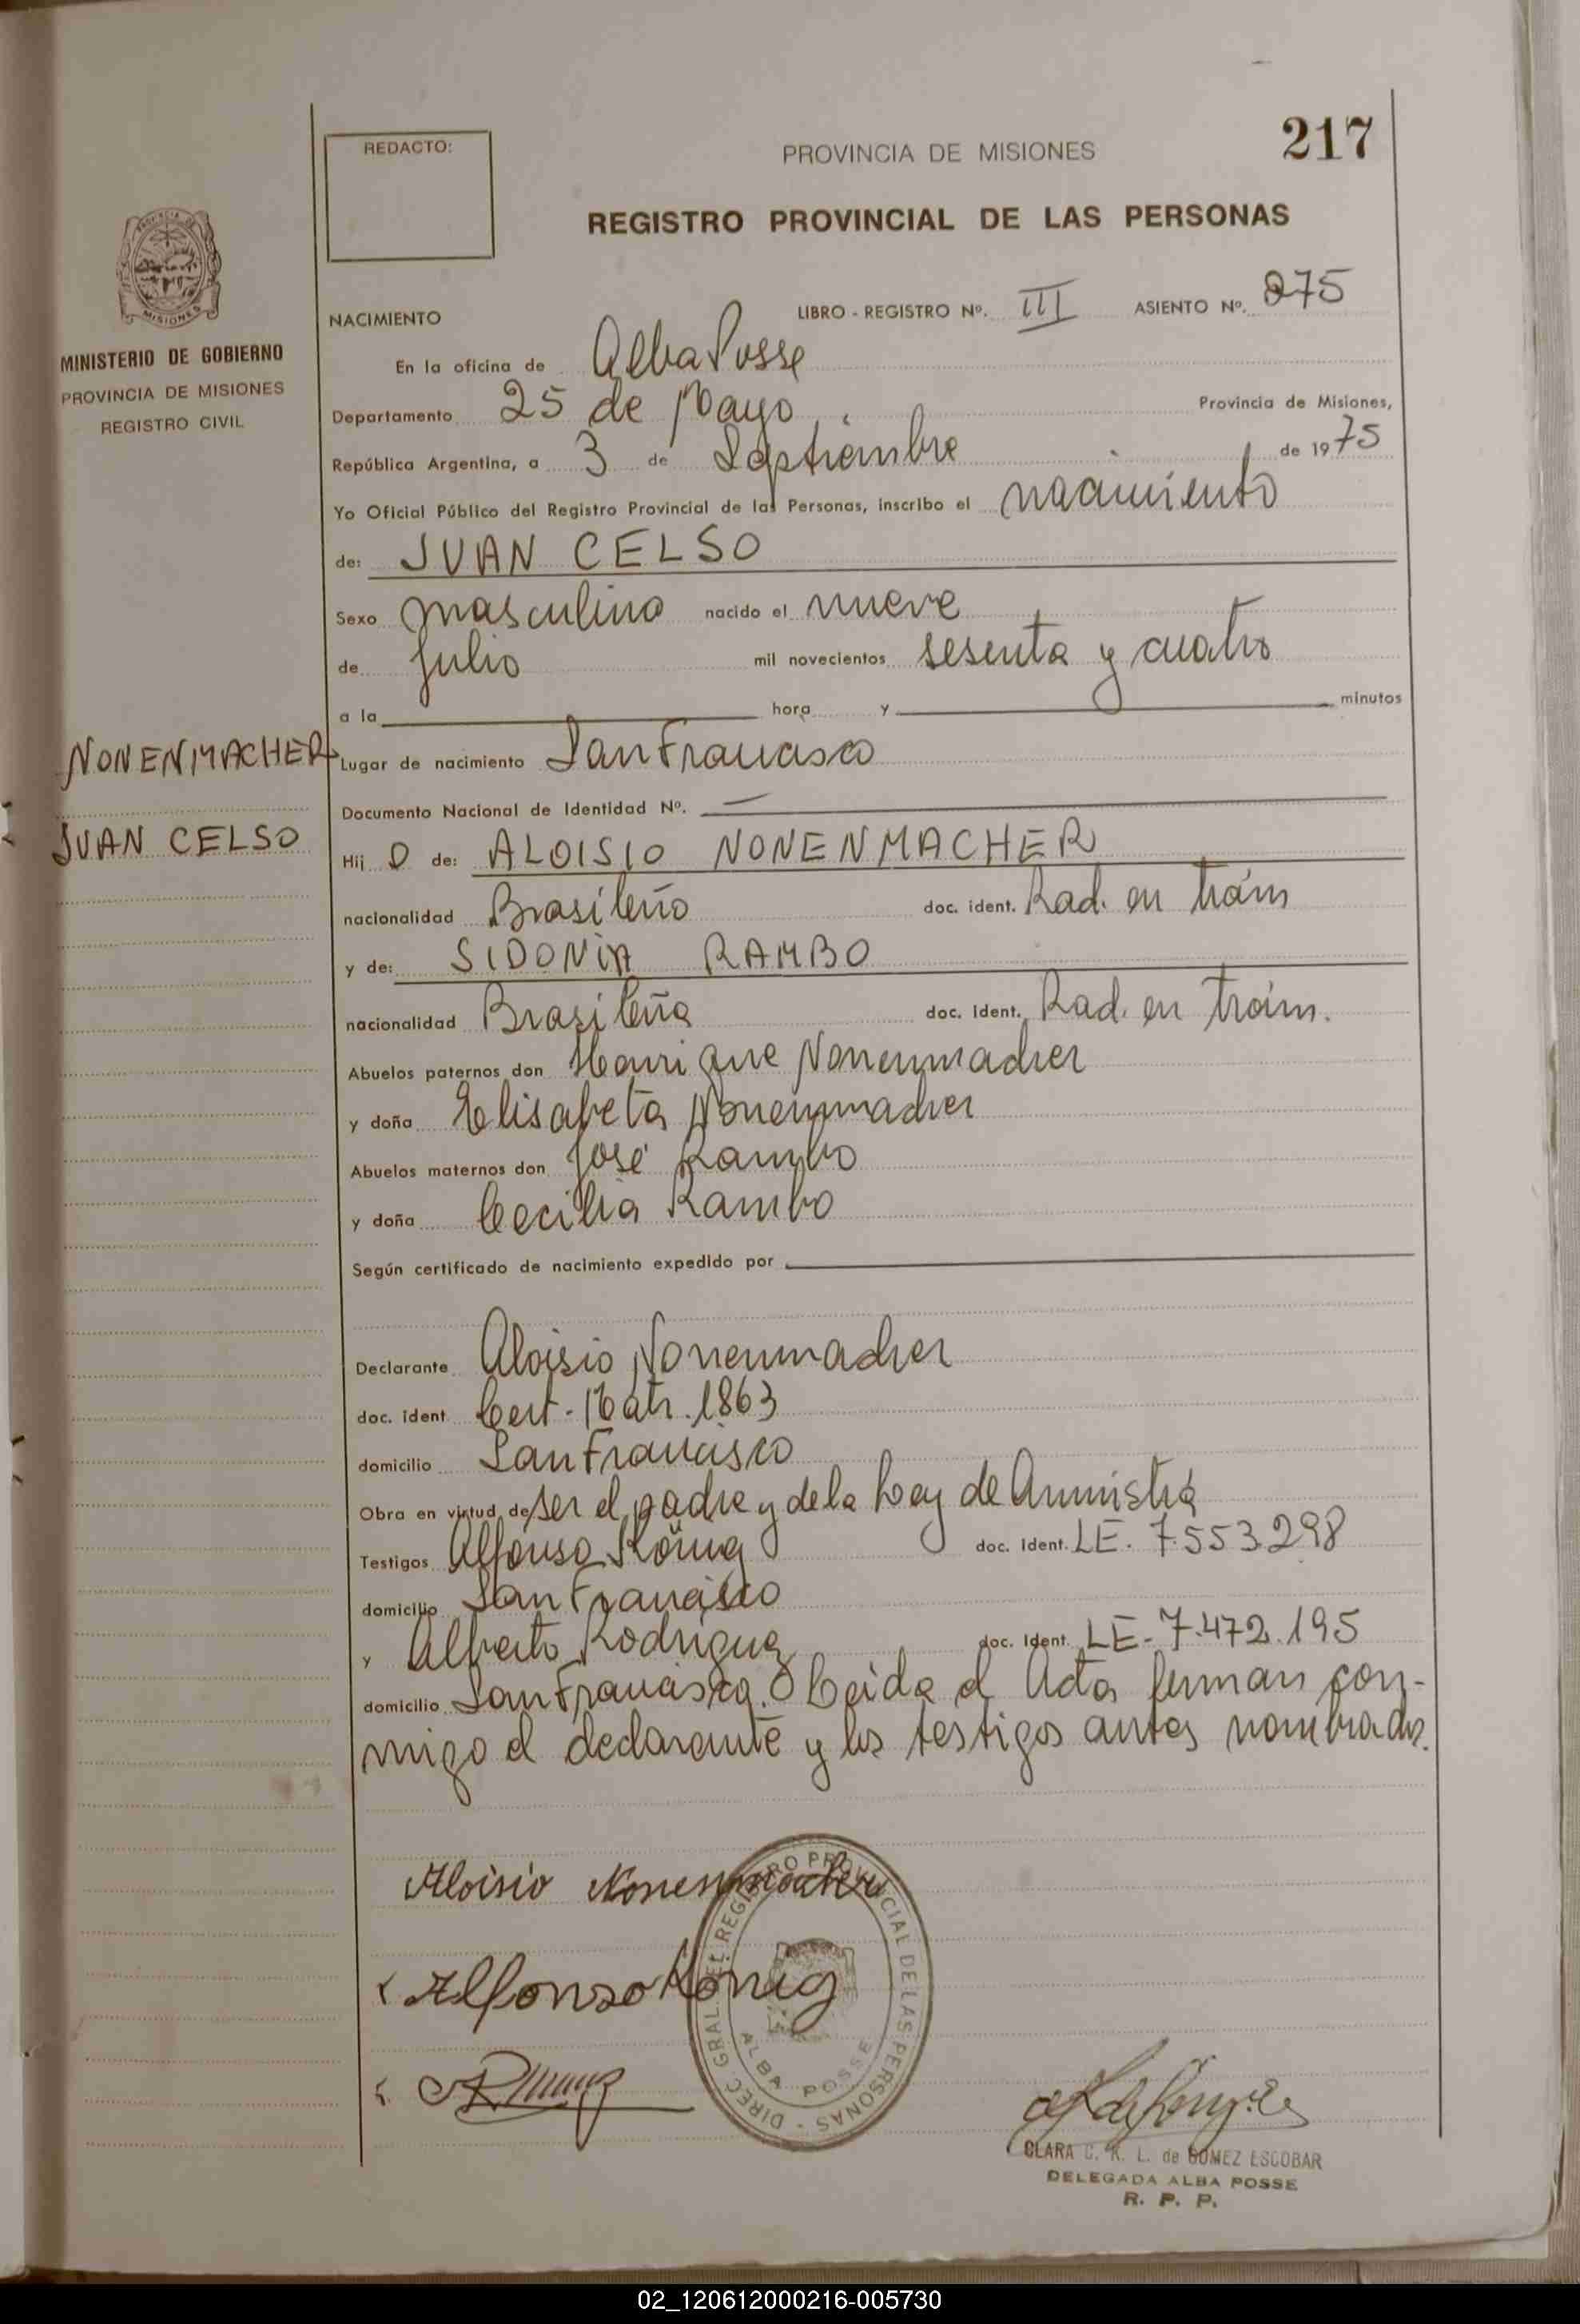 217
REDACTO:
PROVINCIA DE MISIONES
REGISTRO PROVINCIAL DE LAS PERSONAS
MISIONES
MINISTERIO DE GOBIERNO
PROVINCIA DE MISIONES
REGISTRO CIVIL
NACIMIENTO LIBRO - REGISTRO Nº. III ASIENTO Nº. 275
En la oficina de Alba Posse
Departamento 25 de Mayo Provincia de Misiones,
República Argentina, a 3 de Septiembre de 1975
Yo Oficial Público del Registro Provincial de las Personas, inscribo el nacimiento
de: JUAN CELSO
Sexo masculino nacido el nueve
de Julio mil novecientos sesenta y cuatro
a la hora y minutos
NONENMACHER
JUAN CELSO
Lugar de nacimiento San Francisco
Documento Nacional de Identidad Nº. —
Hij O de: ALOISIO NONENMACHER
nacionalidad Brasileño doc. ident. Rad. en trám
y de: SIDONIA RAMBO
nacionalidad Brasileña doc. ident. Rad. en trám.
Abuelos paternos don Henrique Nonenmacher
y doña Elisabeta Nonenmacher
Abuelos maternos don José Rambo
y doña Cecilia Rambo
Según certificado de nacimiento expedido por
Declarante Aloisio Nonenmacher
doc. ident. Cert. Matr. 1863
domicilio San Francisco
Obra en virtud de ser el padre y de la Ley de Amnistiá
Testigos Alfonso König doc. ident. LE. 7.553.298
domicilio San Francisco
y Alberto Rodriguez doc. ident. LE- 7.472.195
domicilio San Francisco. Leida el Acta firman con-
migo el declarante y los testigos antes nombrados.
Aloisio Nonenmacher
Alfonso König
DIREC. GRAL. DEL REGISTRO PROVINCIAL DE LAS PERSONAS - ALBA POSSE
CLARA C. K. L. de GOMEZ ESCOBAR
DELEGADA ALBA POSSE
R. P. P.
02_120612000216-005730